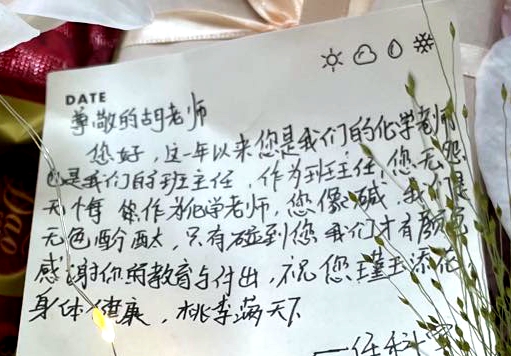 DATE
尊敬的胡老师
您好，这一年以来您是我们的化学老师
也是我们的班主任，作为班主任，您无怨
无悔 您作为化学老师，您像碱，我们是
无色酚酞，只有碰到您 我们才有颜色
感谢你的教育与付出，祝您
身体健康，桃李满天下